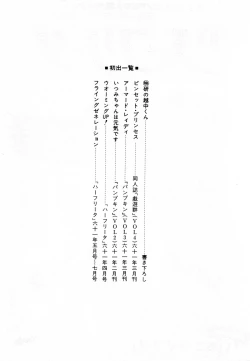 ●初出一覧●
㊙研の越中くん……書き下ろし
ピンセット・プリンセス……同人誌「戯遊群」VOL4 六十一年三月刊
アーマード・レイディ……「パンプキン」VOL3 六十一年三月刊
いつみちゃんは元気です……「パンプキン」VOL2 六十一年二月刊
ウオーミングUP!……「ハーフリータ」六十一年四月号
フライングゼネレーション……「ハーフリータ」六十一年五月号―七月号